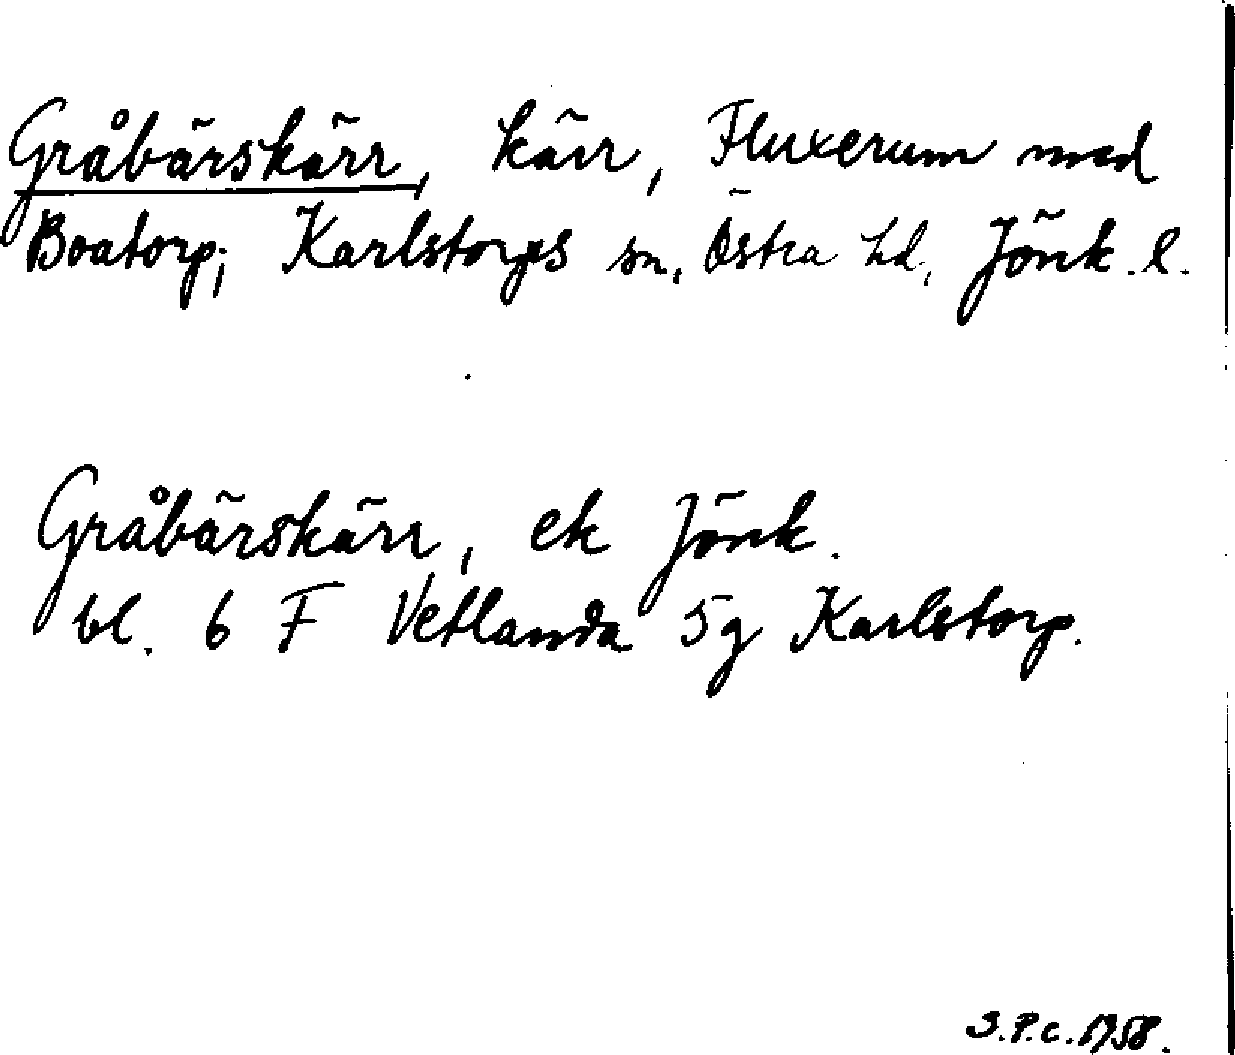 Gråbärskärr, kärr, Fluxerum med
Boatorp, Karlstorps sn, Östra hd, Jönk. l.
Gråbärskärr, ek Jönk.
bl. 6 F Vetlanda 5g Karlstorp.
S.P.C. 1958.